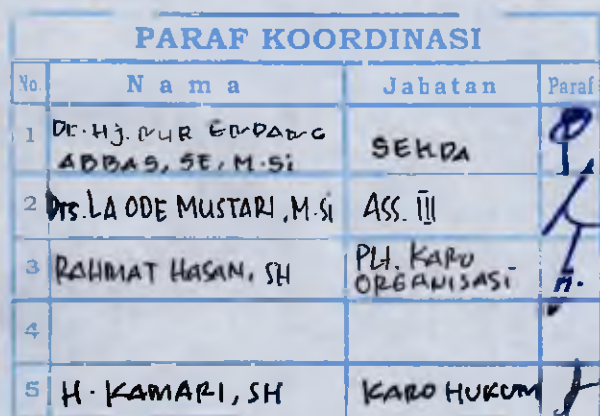 PARAF KOORDINASI
No. Nama Jabatan Paraf
1 Dr. Hj. NUR ENDANG ABBAS, SE, M.Si SEKDA
2 Drs. LA ODE MUSTARI, M.Si ASS. III
3 RAHMAT HASAN, SH PLH. KARO ORGANISASI
4
5 H. KAMARI, SH KARO HUKUM